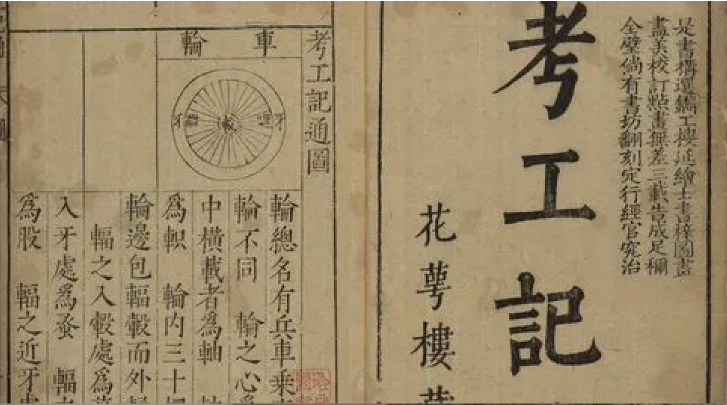 是書搆選鐫工樓延繪士書梓圖畫
盡美校訂點畫無差三載告成足稱
全璧倘有書坊翻刻定行經官究治
考工記
花萼樓
考工記通圖
車輪
牙
牙
輪總名有兵車乘
輪不同 輪之心為
中橫載者為軸
為軹 輪內三十
輪邊包輻轂而外
輻之入轂處為
入牙處為蚤 輻
為股 輻之近牙